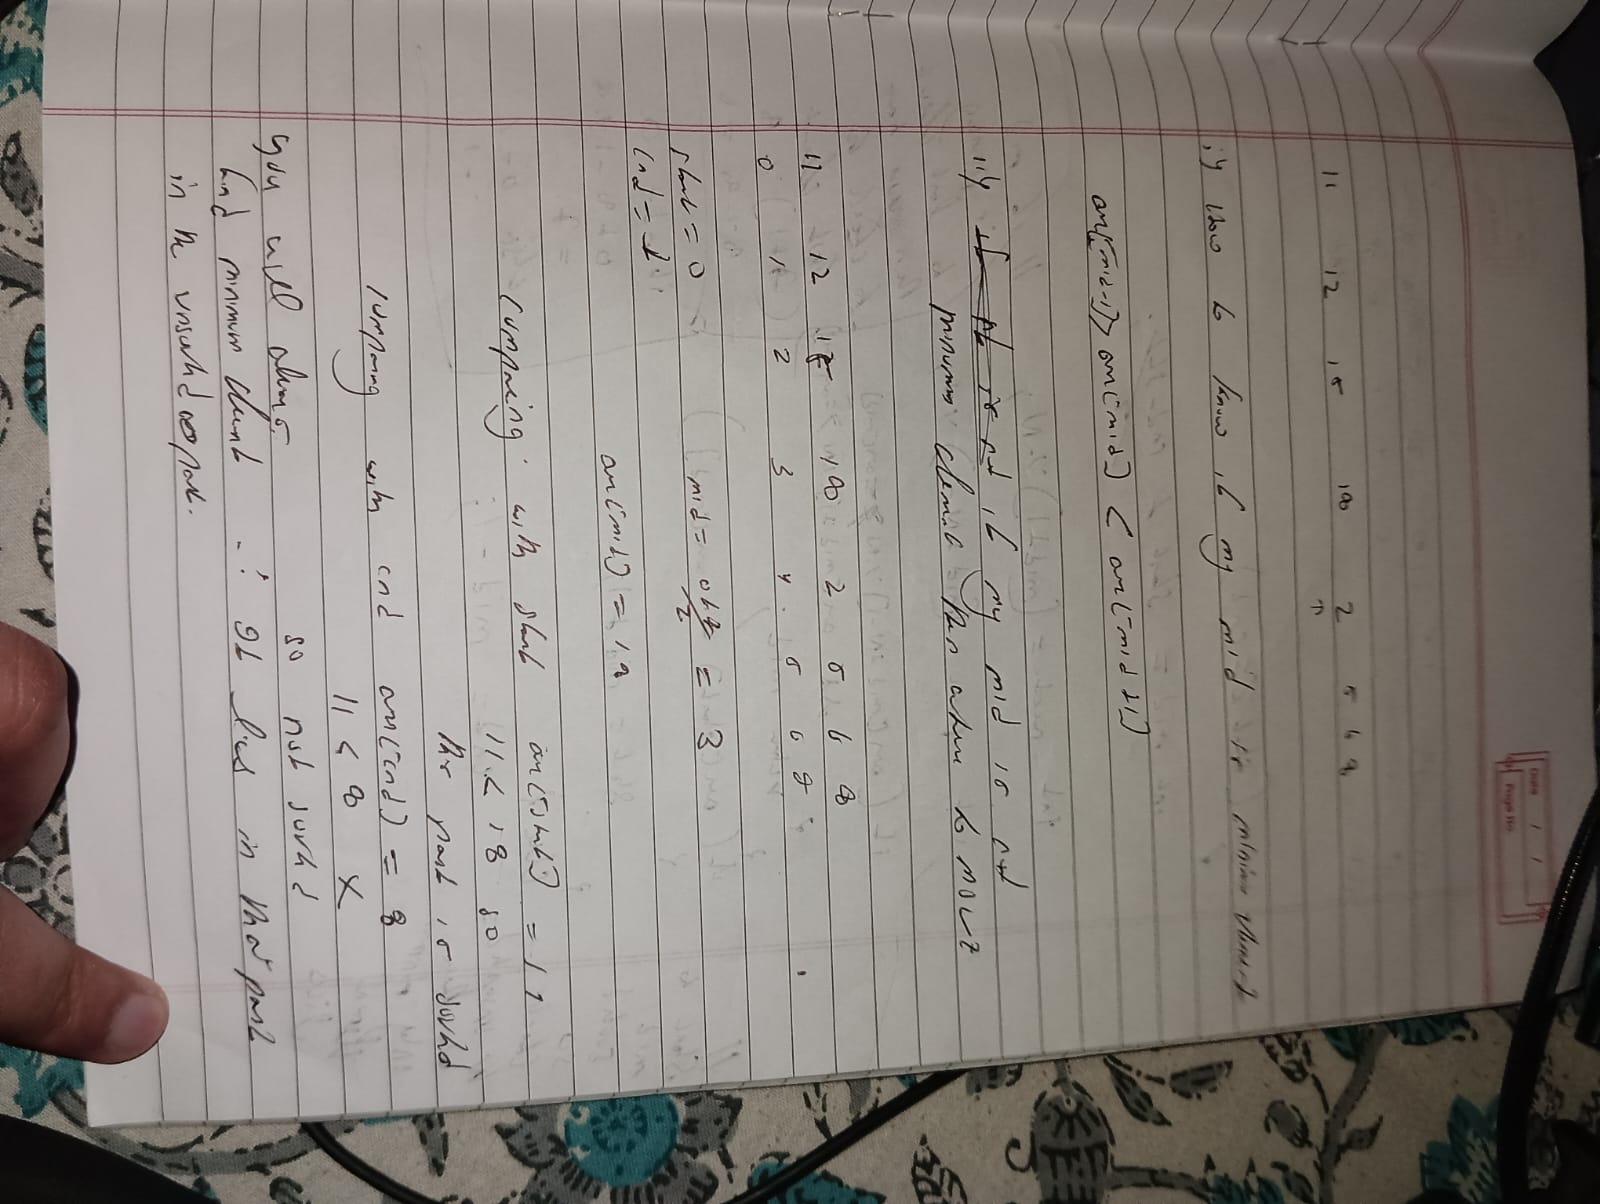 Date / /
Page No.
11 12 15 18 2 5 6 8
↑
i) How to know if my mid is minimum element
arr[mid-1] > arr[mid] < arr[mid+1]
if my mid is not
minimum element then where to move?
11 12 15 18 2 5 6 8
0 1 2 3 4 5 6 7
start = 0 mid = = 3
end =
arr[mid] = 18
Comparing with start arr[start] = 11
11 < 18 so
this part is sorted
comparing with end arr[end] = 8
11 < 8 X
so not sorted
you will always
find minimum element ∴ It lies in that part
in the unsorted part.